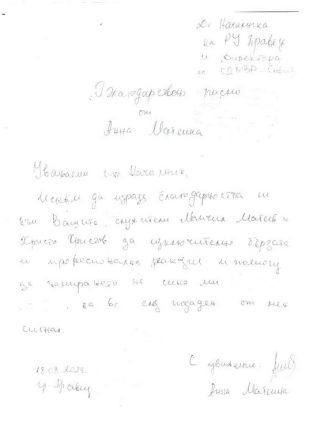 До Началника
на РУ Правец
и Директора
на СДВР - София
Благодарствено писмо
от
Анна Маткина
Уважаеми г-н Началник,
Искам да изразя благодарността си
към Вашите служители
Христо Христов за изключително бързата
и професионална реакция и помощ
за намирането на сина ми
на 6г. след подаден от мен
сигнал.
гр. Правец
С уважение:
Анна Маткина